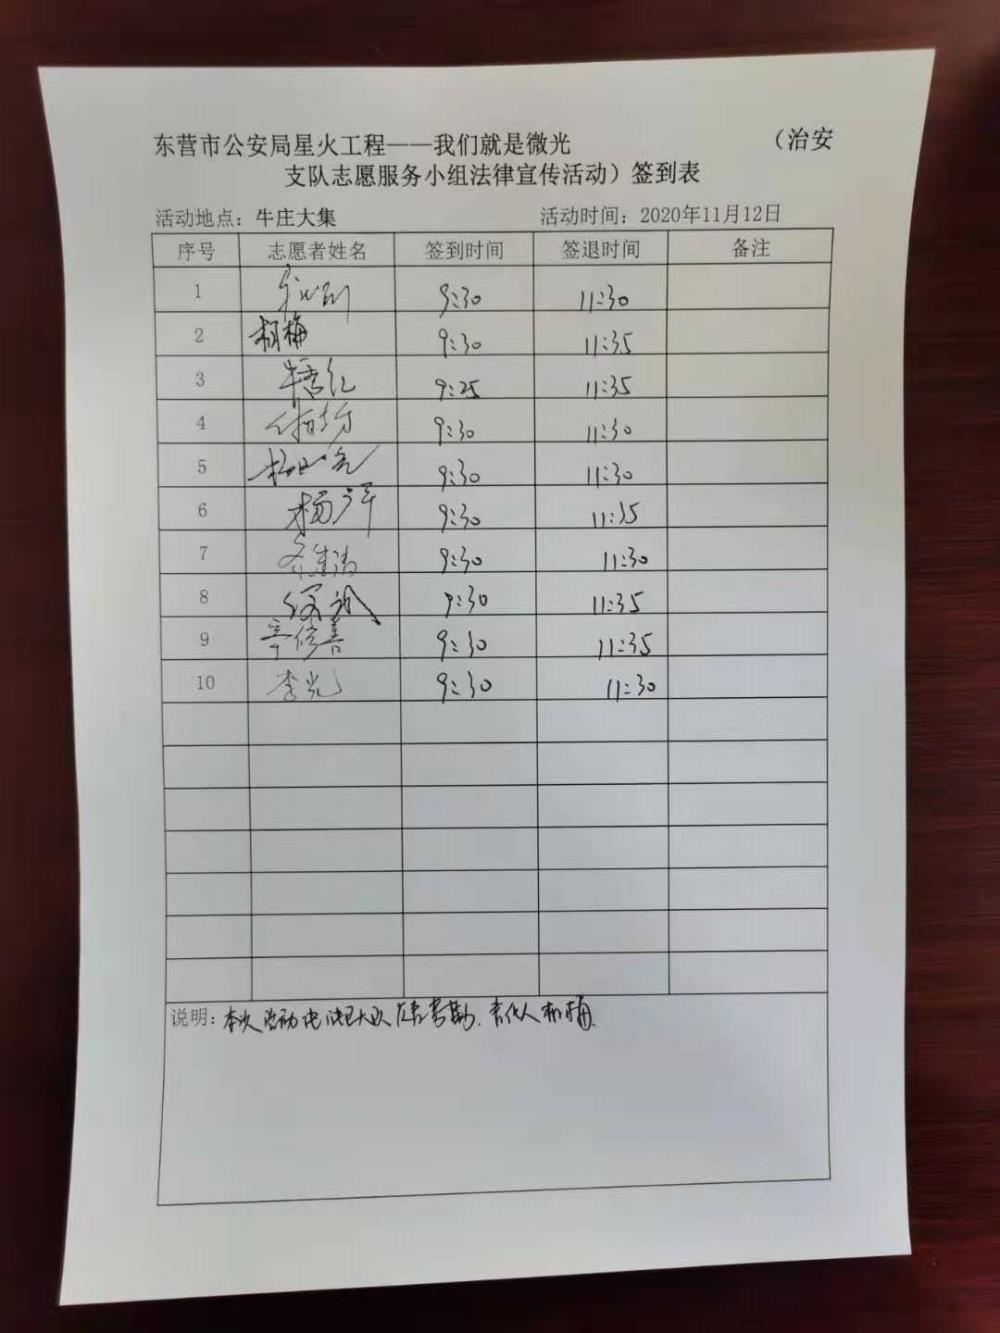 东营市公安局星火工程——我们就是微光 （治安
支队志愿服务小组法律宣传活动）签到表
活动地点：牛庄大集 活动时间：2020年11月12日
序号 志愿者姓名 签到时间 签退时间 备注
1 9:30 11:30
2 胡梅 9:30 11:35
3 9:25 11:35
4 9:30 11:30
5 9:30 11:30
6 杨萍 9:30 11:35
7 9:30 11:30
8 9:30 11:35
9 辛俊善 9:30 11:35
10 李光 9:30 11:30
说明：本次活动由 大队负责考勤. 责任人胡梅.